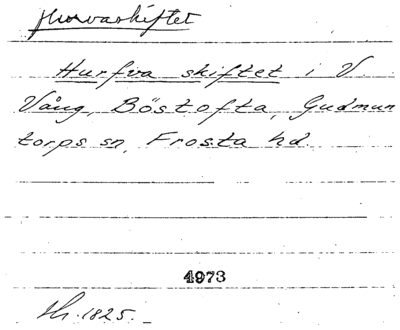 Hurvaskiftet
Hurfva skiftet i V.
Vång, Böstofta, Gudmun
torps sn, Frosta hd.
4973
1825.